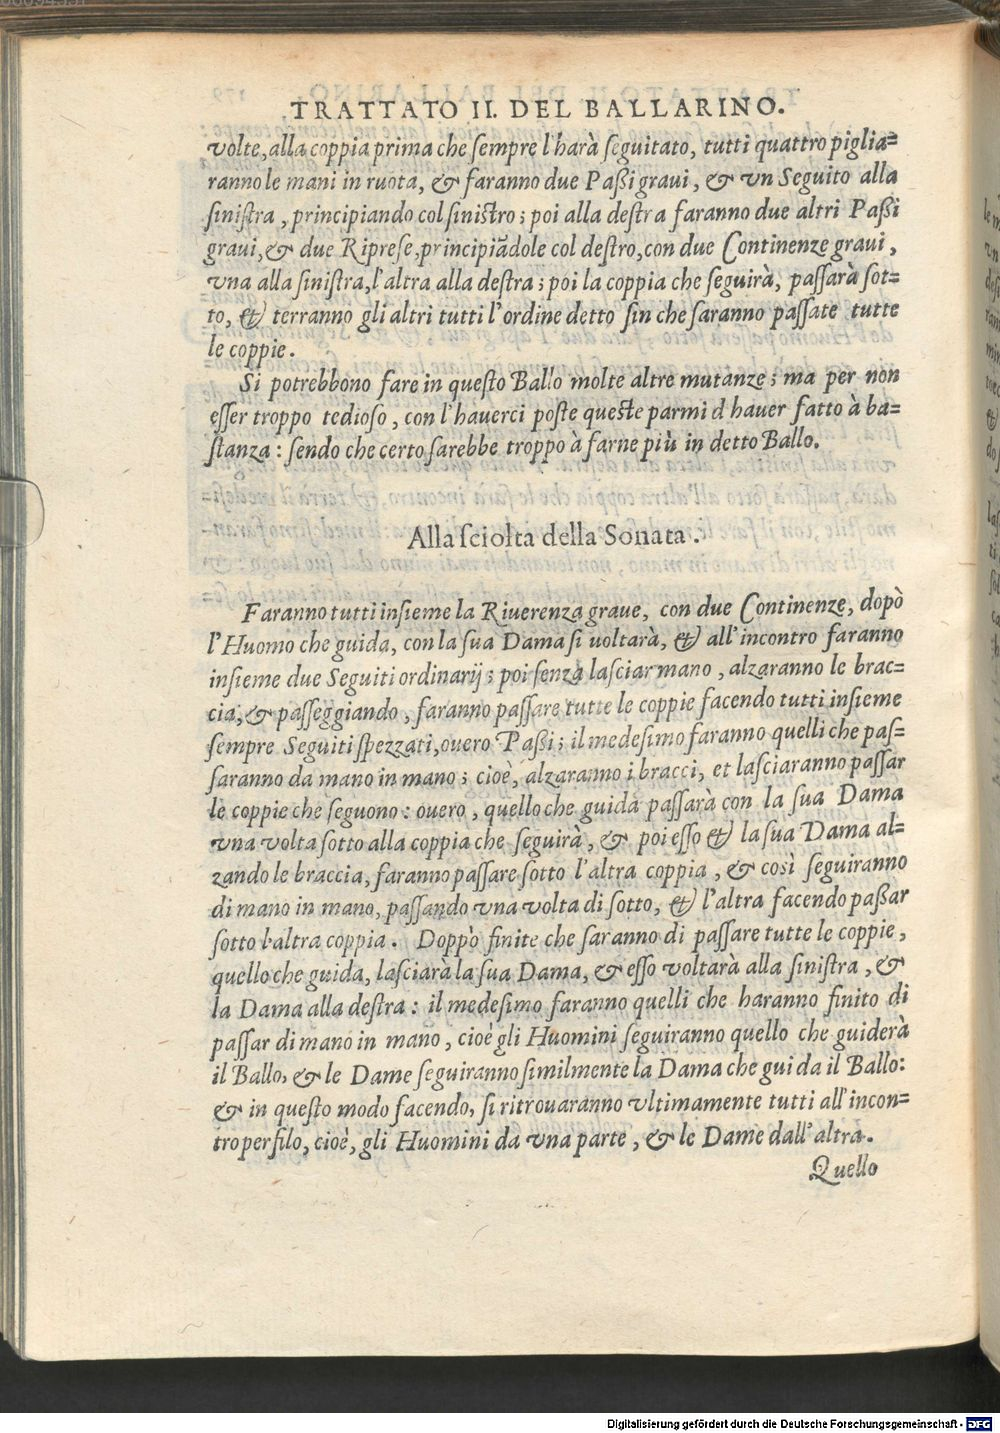 TRATTATO II. DEL BALLARINO.
volte, alla coppia prima che ſempre l'harà ſeguitato, tutti quattro piglia=
ranno le mani in ruota, & faranno due Paßi graui, & vn Seguito alla
ſiniſtra, principiando col ſiniſtro; poi alla deſtra faranno due altri Paßi
graui, & due Ripreſe, principiãdole col deſtro, con due Continenze graui,
vna alla ſiniſtra, l'altra alla deſtra; poi la coppia che ſeguirà, paſſarà ſot=
to, & terranno gli altri tutti l'ordine detto ſin che ſaranno paſſate tutte
le coppie.
Si potrebbono fare in queſto Ballo molte altre mutanze; ma per non
eſſer troppo tedioſo, con l'hauerci poſte queſte parmi d'hauer fatto à ba=
ſtanza: ſendo che certo ſarebbe troppo à farne più in detto Ballo.
Alla ſciolta della Sonata.
Faranno tutti inſieme la Riuerenza graue, con due Continenze, dopò
l'Huomo che guida, con la ſua Dama ſi uoltarà, & all'incontro faranno
inſieme due Seguiti ordinarij; poi ſenza laſciar mano, alzaranno le brac=
cia, & paſſeggiando, faranno paſſare tutte le coppie facendo tutti inſieme
ſempre Seguiti ſpezzati, ouero Paßi; il medeſimo faranno quelli che paſ=
ſaranno da mano in mano; cioè, alzaranno i bracci, et laſciaranno paſſar
le coppie che ſeguono: ouero, quello che guida paſſarà con la ſua Dama
vna volta ſotto alla coppia che ſeguirà, & poi eſſo & la ſua Dama al=
zando le braccia, faranno paſſare ſotto l'altra coppia, & così ſeguiranno
di mano in mano, paſſando vna volta di ſotto, & l'altra facendo paßar
ſotto l'altra coppia. Doppò finite che ſaranno di paſſare tutte le coppie,
quello che guida, laſciarà la ſua Dama, & eſſo voltarà alla ſiniſtra, &
la Dama alla deſtra: il medeſimo faranno quelli che haranno finito di
paſſar di mano in mano, cioè gli Huomini ſeguiranno quello che guiderà
il Ballo, & le Dame ſeguiranno ſimilmente la Dama che guida il Ballo:
& in queſto modo facendo, ſi ritrouaranno vltimamente tutti all'incon=
tro per filo, cioè, gli Huomini da vna parte, & le Dame dall'altra.
Quello
Digitalisierung gefördert durch die Deutsche Forschungsgemeinschaft - DFG